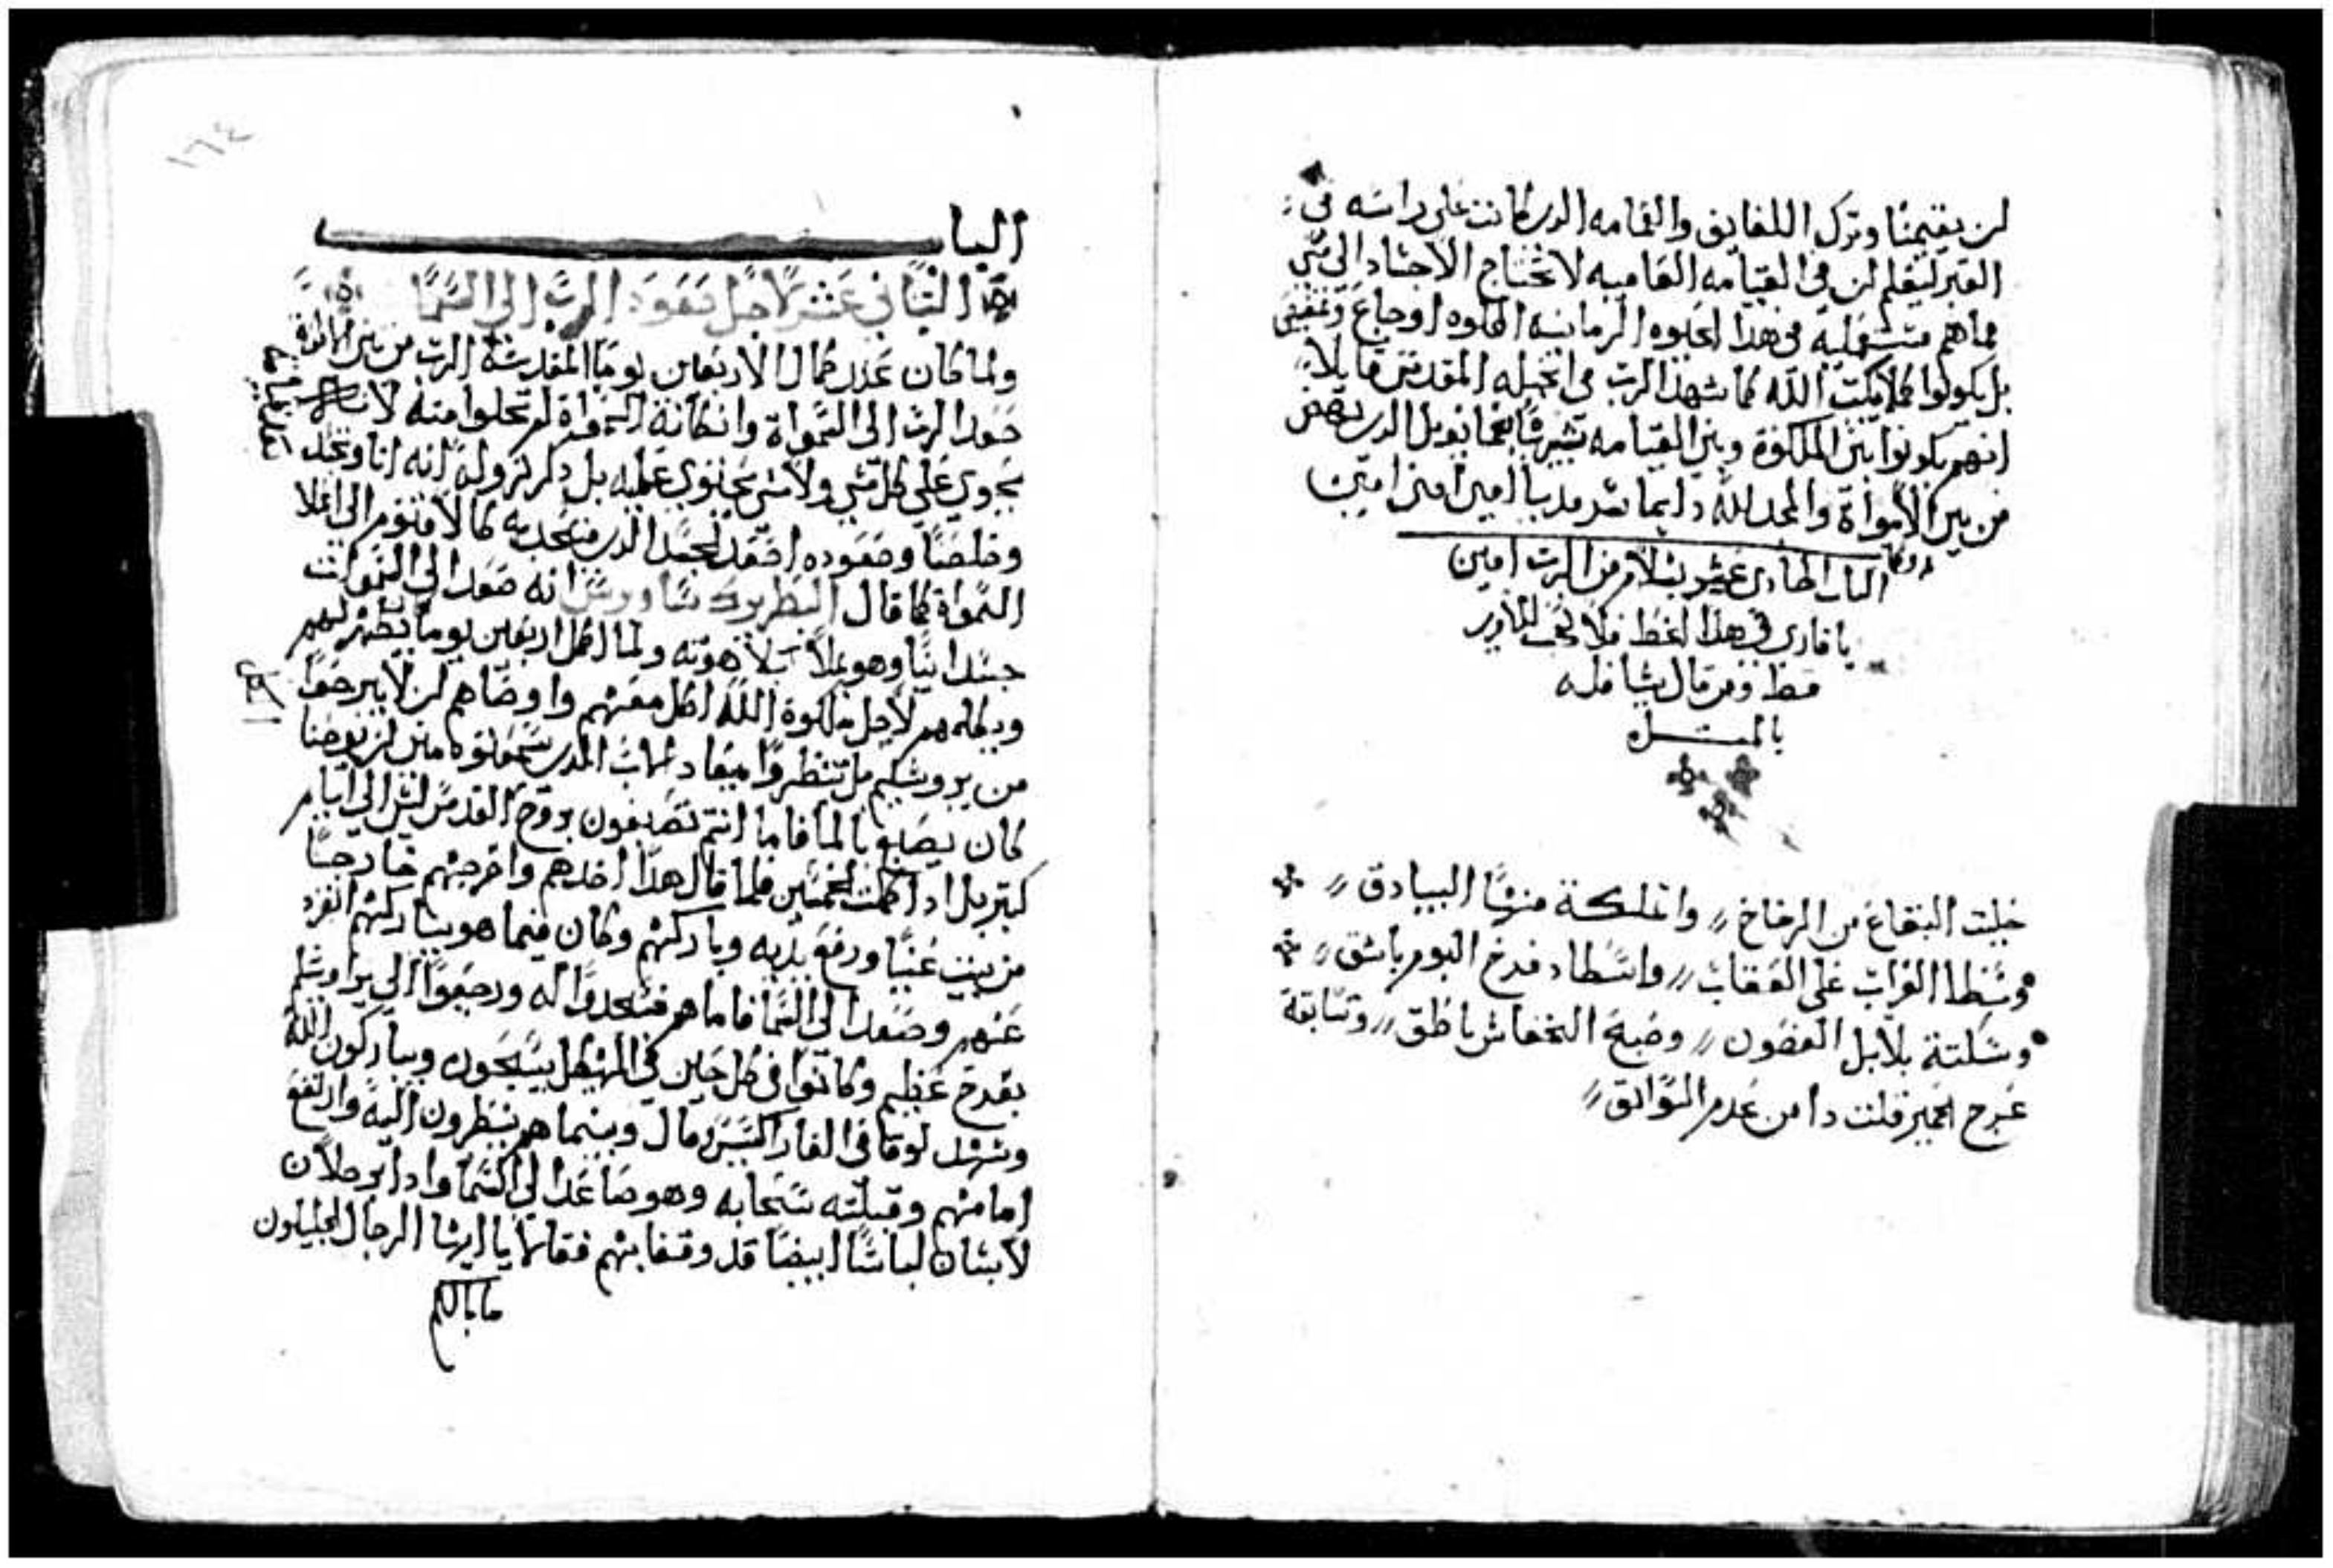 لن يقيمنا وترك اللفايف والعمامه الدى كانت على راسه فى
القبر ليعلم لن فى القيامه العاميه لا تحتاج الاجساد الى شى
مما هم مستعمليه فى هذا الحيوه الزمانيه الحلوه اوجاع
بل يكونوا كملايكت الله كما شهد الرب فى انجيله المقدس قايلا
انهم يكونوا بنى الملكوة وبنى القيامه بعمانويل الدى نهض
من بين الامواة والمجد لله دايما سرمديا امين امين امين
الباب الحادى عشر بسلام من الرب امين
يا قارى فى هذا الخط فلا
قط ومن قال شيا فله
بالمتـــله
خليت البقاع من الرخاخ وا منها البيادق
وسطا الغراب على العقاب واسطاد فرخ البوم باشق
وسكتة بلابل الغصون وصبح الخفاش ناطق وتسابقة
عرج الحمير فلت دا من عدم السوابق
١٦٤
البا
الثانى عشر لاجل صعود الرب الى السما
ولما كان عدد كمال الاربعين يوما المقدسة الرب من بين
صعد الرب الى السمواة وانكانة السمواة لم تخلوا منه لانه
يحوى على كل شى ولا شى يحتوى عليه بل دكر نزوله انه
وخلصنا وصعوده اصعد الجسد الدى متحد به كالاقنوم الى اعلا
السمواة كما قال البطريرك ساويرس انه صعد الى السموات
جسدانيا وهو يملا بلاهوته ولما اكمل اربعين يوما يظهر لهم
ويكلمهم لاجل ملكوة الله اكل معهم واوصاهم لن لا يبرحوا
من يروشليم بل تنتظروا ميعاد الاب الدى سمعتوه منى لن يوحنا
كان يصبغ بالما فاما انتم تصبغون بروح القدس ليس الى ايام
كتير بل ادا كملت الخمسين فلما قال هدا اخدهم واخرجهم خارجا
من بيت عنيا ورفع يديه وباركهم وكان فيما هو يباركهم انفرد
عنهم وصعد الى السما فاما هم فسجدوا له ورجعوا الى يراوشليم
بفرح عظيم وكانوا فى كل حين فى الهيكل يسبحون ويباركون الله
وشهد لوقا فى الفاراكسيس وقال وبينما هم ينظرون اليه وارتفع
امامهم وقبلته سحابه وهو صاعد الى السما وادا برجلان
لابسان لباسا ابيضا قد وقفا بهم فقالا يا ايها الرجال الجليليون
ما بالكم